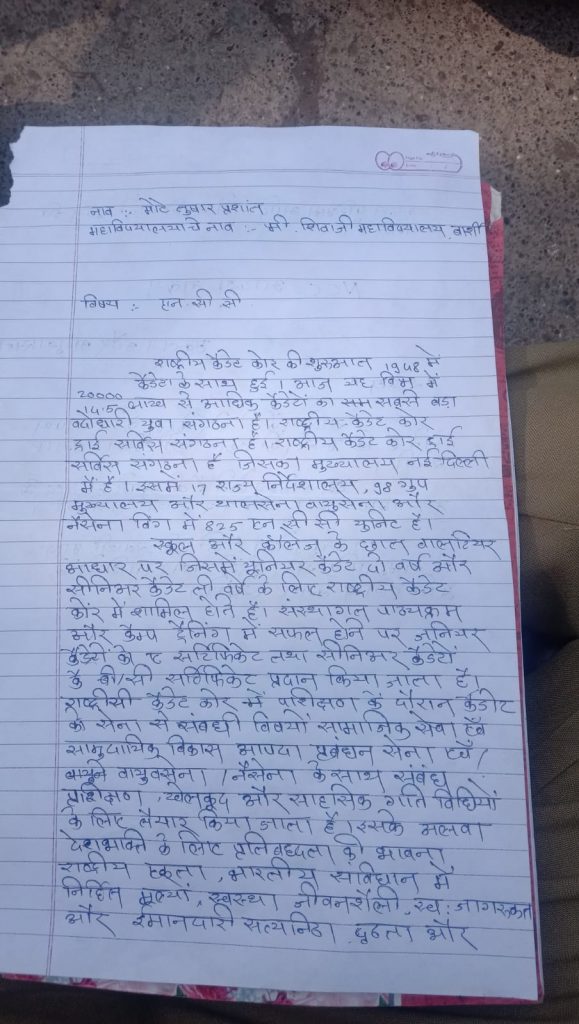 नाव :- मोटे तुषार प्रशांत
महाविद्यालयाचे नाव :- श्री. शिवाजी महाविद्यालय बार्शी
विषय :- एन. सी. सी.
राष्ट्रीय कैडेट कोर की शुरुआत 1948 में
20000 कैडेटो के साथ हुई। आज यह विश्व में
14.5 लाख से अधिक कैडेटों का सबसे बडा
वर्दीधारी युवा संगठना है। राष्ट्रीय कैडेट कोर
ट्राई सर्विस संगठना है। राष्ट्रीय कैडेट कोर ट्राई
सर्विस संगठना है जिसका मुख्यालय नई दिल्ली
में है। इसमें 17 राज्य निर्देशालय, 98 ग्रुप
मुख्यालय और थालसेना वायुसेना और
नैसेना विंग में 825 एन सी सी युनिट है।
स्कूल और कॉलेज के वालंटियर
आधार पर जिसमें जुनियर कैडेट दो वर्ष और
सीनिअर कैडेट ती वर्ष के लिए राष्ट्रीय कैडेट
कोर में शामिल होते है। संस्थागत पाठ्यक्रम
और कैम्प ट्रैनिंग में सफल होने पर जुनियर
कैडेटों को ए सर्टिफिकेट तथा सीनिअर कैडेटों
के बी/सी सर्टिफिकेट प्रदान किया जाता है।
कैडेट कोर में प्रशिक्षण के दौरान कैडीट
को सेना से संबधी विषयों सामाजिक सेवा एवं
सामुदायिक विकास आपदा प्रबंधन सेना एवं /
वायुसेना / नैसेना के साथ संबंध
प्रशिक्षण, खेलकूद और साहसिक गति विधियों
के लिए तैयार किया जाता है। इसके अलवा
देशभक्ति के लिए प्रतिबध्दता की भावना
राष्ट्रीय एकता, भारतीय संविधान में
निहित मूल्यों, स्वस्था जीवनशैली, स्व: जागरूकत
और इमानदारी सत्यनिठा दृढता और